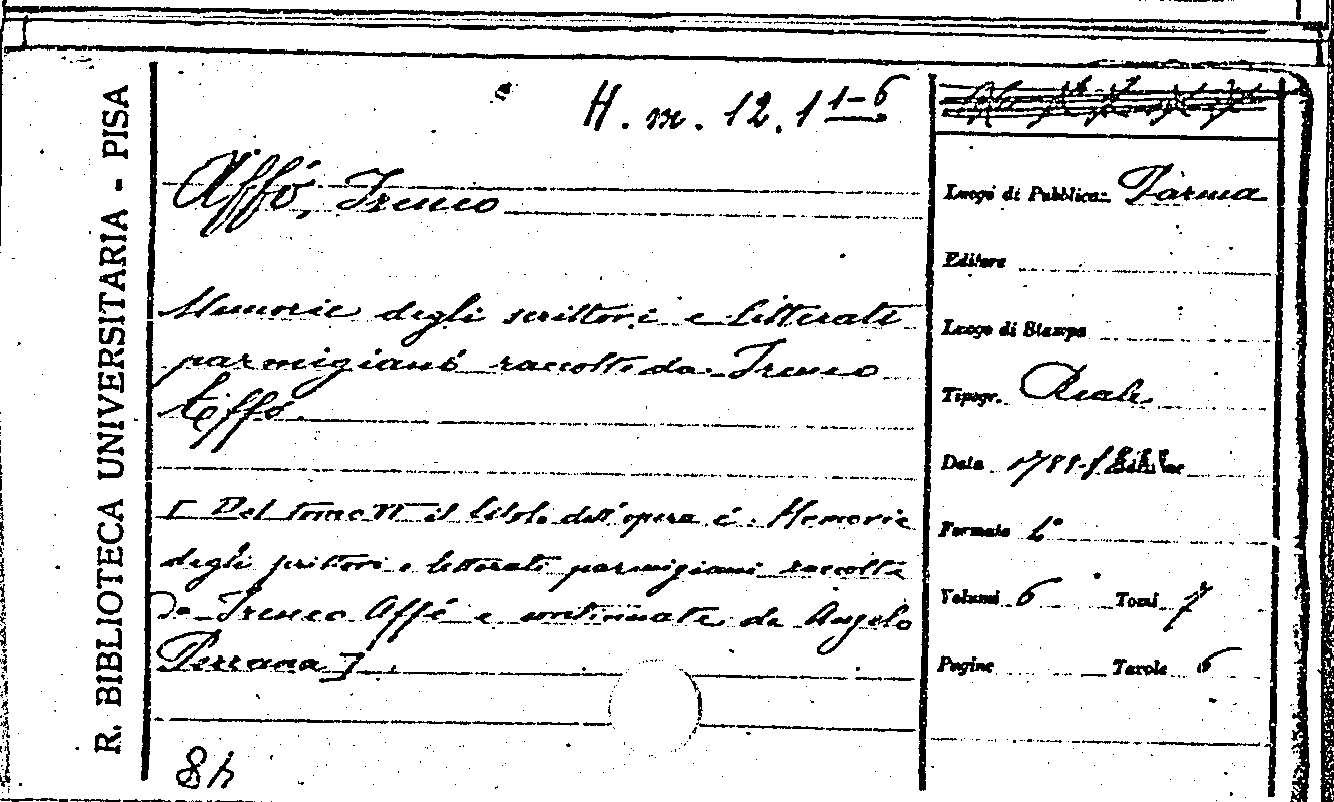 R. BIBLIOTECA UNIVERSITARIA - PISA
H. m. 12. 1 1-6
Affó, Ireneo
Memorie degli scrittori e letterati
parmigiani raccolte da Ireneo
Affó.
[Del tomo VI il titolo dell'opera è: Memorie
degli scrittori e letterati parmigiani raccolte
da Ireneo Affó e continuate da Angelo
Pezzana].
84
Luogo di Pubblicaz. Parma
Editore
Luogo di Stampa
Tipogr. Reale
Data
Formato
Volumi 6 Tomi 7
Pagine Tavole 6